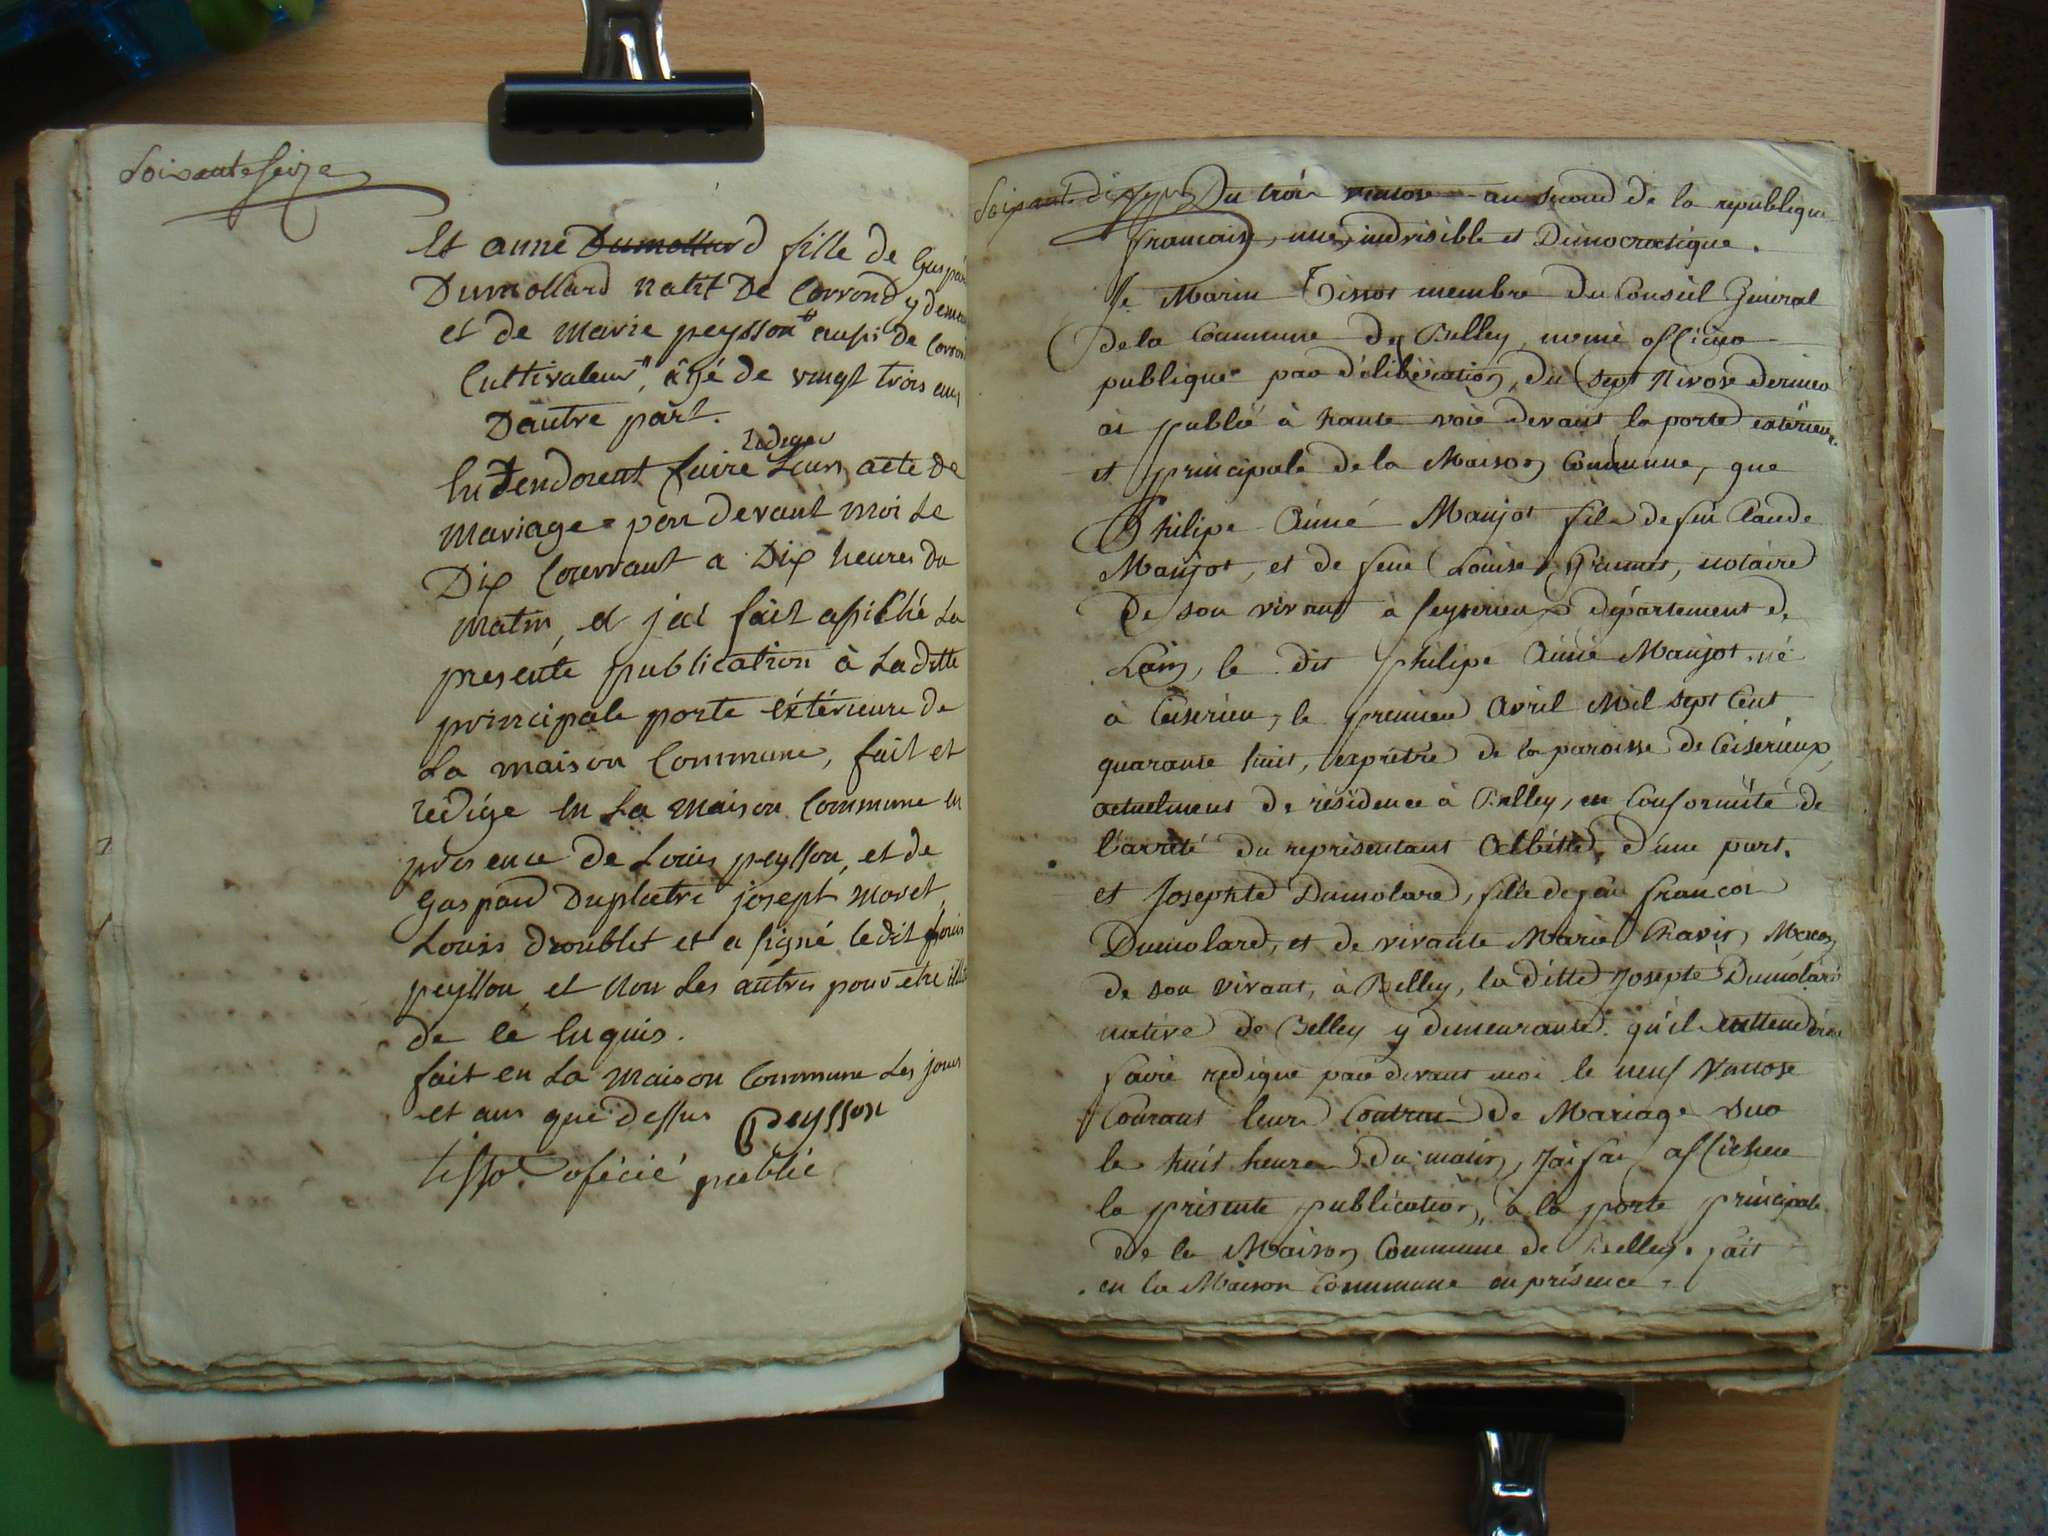 Soixante seize
Et anne Dumollard fille de Gaspar
Dumollard natif De Corrond y demeu
et de marie peysson aussi de Corron
Cultivateur, âgé de vingt trois ans
Dautre part.
rediger
Entendorent faire Leurs acte de
mariage par devant moi Le
Dix Courrant a Dix heures du
matin, et jai fait afiché La
presente publication à La ditte
principale porte éxtérieure de
La maison Commune, fait et
rédigé en La maison Commune en
presence de Louis peysson, et de
gaspard Duplatre joseph moret,
Louis Droublet et a signé ledit Louis
peysson et non Les autres pour etre illi
de ce Enquis.
fait en La maison Commune Les jours
et ans que dessus Peysson
tissot oficié publié
Soixante dix sept Du trois ventose an second de la republique
francaise, une, indivisible et Democratique.
Je Marin Tissot membre du Conseil Général
de la Commune de Belley, nomé officier
publique par délibération, du sept Nivose dernier
ai publié à haute voie devant la porte extérieure
et principale de la Maison Commune, que
Philipe Aimé Maujot fils de feu Claude
Maujot, et de feue Louise, notaire
de son vivant à Ceyserieux département de
Lain, le dit philipe Aimé Maujot né
à Ceiserieu, le premier Avril Mil sept Cent
quarante huit, exprêtre de la paroisse de Ceiserieux,
actuelment de résidence à Belley, en Conformité de
l'arrêté du représentant Albitte, d'une part.
et Josephte Dumolard, fille de feu francoi
Dumolard, et de vivante Marie Chavin, Macon
de son vivant, à Belley, la ditte Josepte Dumolard
native de Belley y demeurante. qu'il entendoire
faire redigé par devant moi le neuf Vantose
Courant leurs Contrat de Mariage sur
le huit heures du matin, J'ai fai afficheu
la présente publication, à la porte principale
de la Maison Commune de Belley. fait
en la Maison Commune en présence